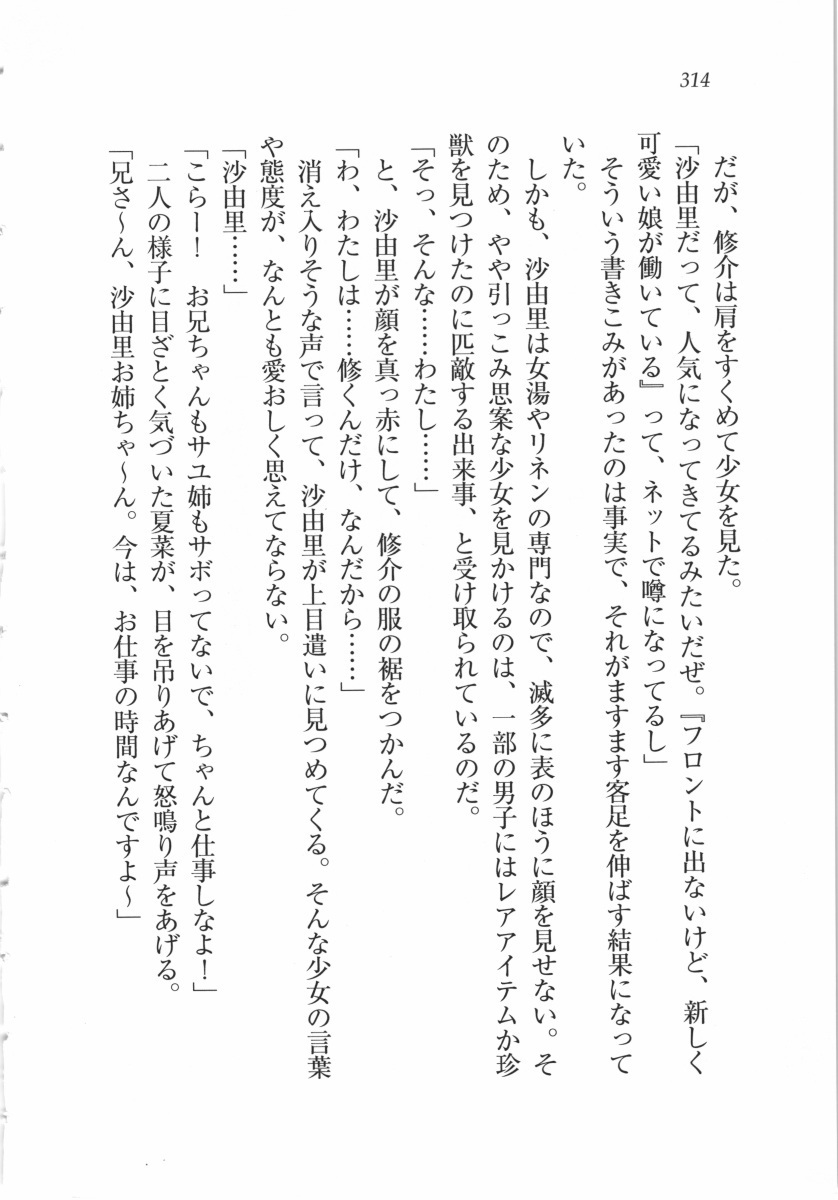 314
だが、修介は肩をすくめて少女を見た。
「沙由里だって、人気になってきてるみたいだぜ。『フロントに出ないけど、新しく
可愛い娘が働いている』って、ネットで噂になってるし」
そういう書きこみがあったのは事実で、それがますます客足を伸ばす結果になって
いた。
しかも、沙由里は女湯やリネンの専門なので、滅多に表のほうに顔を見せない。そ
のため、やや引っこみ思案な少女を見かけるのは、一部の男子にはレアアイテムか珍
獣を見つけたのに匹敵する出来事、と受け取られているのだ。
「そっ、そんな……わたし……」
と、沙由里が顔を真っ赤にして、修介の服の裾をつかんだ。
「わ、わたしは……修くんだけ、なんだから……」
消え入りそうな声で言って、沙由里が上目遣いに見つめてくる。そんな少女の言葉
や態度が、なんとも愛おしく思えてならない。
「沙由里……」
「こらー！　お兄ちゃんもサユ姉もサボってないで、ちゃんと仕事しなよ！」
二人の様子に目ざとく気づいた夏菜が、目を吊りあげて怒鳴り声をあげる。
「兄さ〜ん、沙由里お姉ちゃ〜ん。今は、お仕事の時間なんですよ〜」